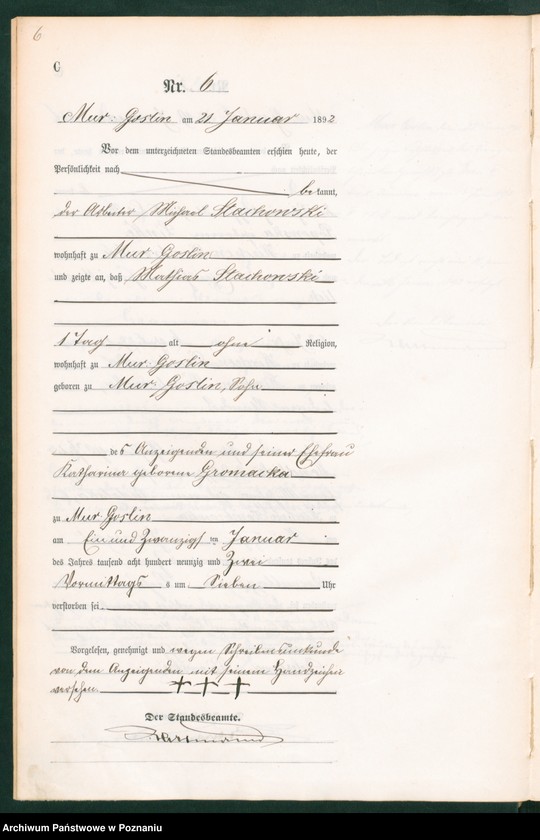 6
C
Nr. 6
Mur: Goslin am 21 Januar 1892
Vor dem unterzeichneten Standesbeamten erschien heute, der
Persönlichkeit nach
be kannt,
der Arbeiter Michael Stachowski
wohnhaft zu Mur: Goslin
und zeigte an, daß Mathias Stachowski
1 Tag alt ohne Religion,
wohnhaft zu Mur: Goslin
geboren zu Mur: Goslin, Sohn
des Anzeigenden und seiner Ehefrau
Katharina geborene Gromacka
zu Mur: Goslin
am Ein und Zwanzigsten Januar
des Jahres tausend acht hundert neunzig und Zwei
Vormittags um Sieben Uhr
verstorben sei.
Vorgelesen, genehmigt und wegen Schreibensunkunde
von dem Anzeigenden mit seinem Handzeichen
versehen. + + +
Der Standesbeamte.
Archiwum Państwowe w Poznaniu